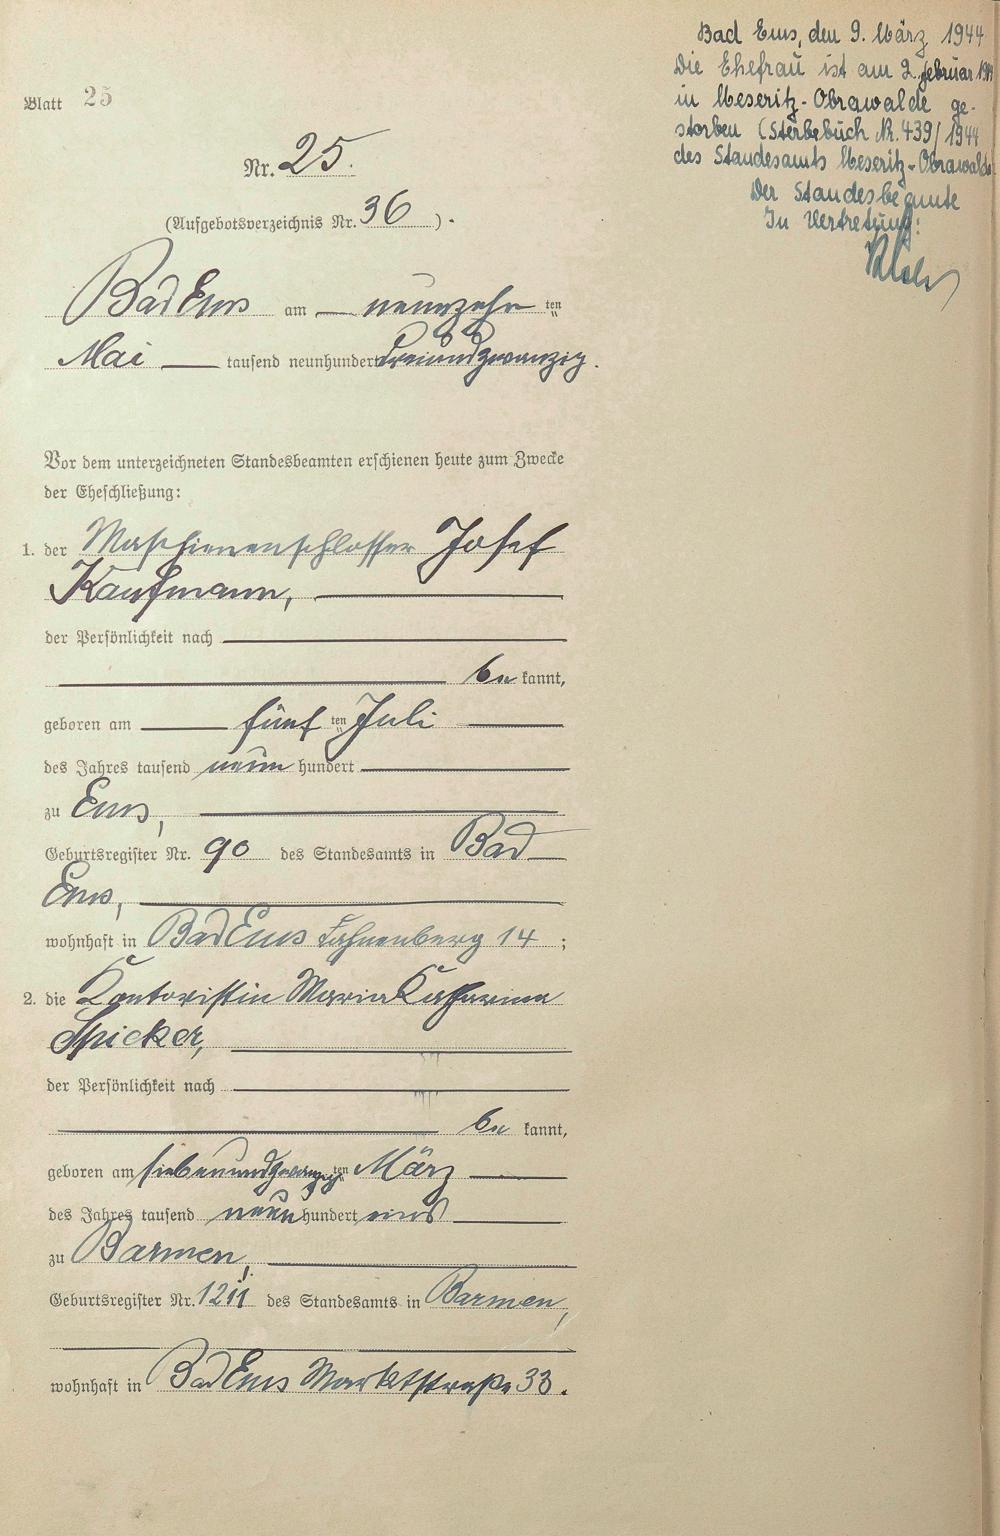 Bad Ems, den 9. März 1944
Die Ehefrau ist am 2. Februar 1944
in Meseritz-Obrawalde ge-
storben (Sterbebuch Nr. 439/1944
des Standesamts Meseritz-Obrawalde
Der Standesbeamte
In Vertretung:
Blatt 25
Nr. 25.
(Aufgebotsverzeichnis Nr. 36).
Bad Ems am neunzehn ten
Mai tausend neunhundert dreiundzwanzig.
Vor dem unterzeichneten Standesbeamten erschienen heute zum Zwecke
der Eheschließung:
1. der Maschienenschlosser Josef
Kaufmann,
der Persönlichkeit nach
be kannt,
geboren am fünf ten Juli
des Jahres tausend neun hundert
zu Ems,
Geburtsregister Nr. 90 des Standesamts in Bad
Ems,
wohnhaft in Bad Ems Fahnenberg 14;
2. die Kontoristin Maria Katharina
Spicker,
der Persönlichkeit nach
be kannt,
geboren am siebenundzwanzig ten März
des Jahres tausend neun hundert eins
zu Barmen,
Geburtsregister Nr. 1211 des Standesamts in Barmen,
wohnhaft in Bad Ems Marktstraße 33.